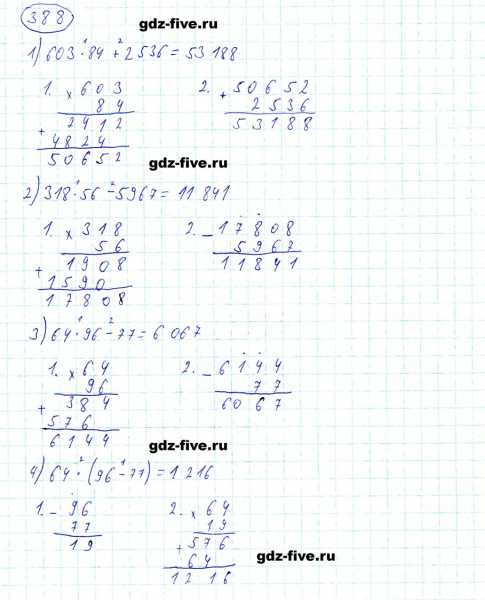 gdz-five.ru
388
1) 603 · 84 + 2 536 = 53 188
1. × 603
84
+ 2412
4824
50652
2. + 50652
2536
53188
gdz-five.ru
2) 318 · 56 - 5967 = 11 841
1. × 318
56
+ 1908
1590
17808
2. - 17808
5967
11841
3) 64 · 96 - 77 = 6 067
1. × 64
96
+ 384
576
6144
2. - 6144
77
6067
gdz-five.ru
4) 64 · (96 - 77) = 1 216
1. - 96
77
19
2. × 64
19
+ 576
64
1216
gdz-five.ru